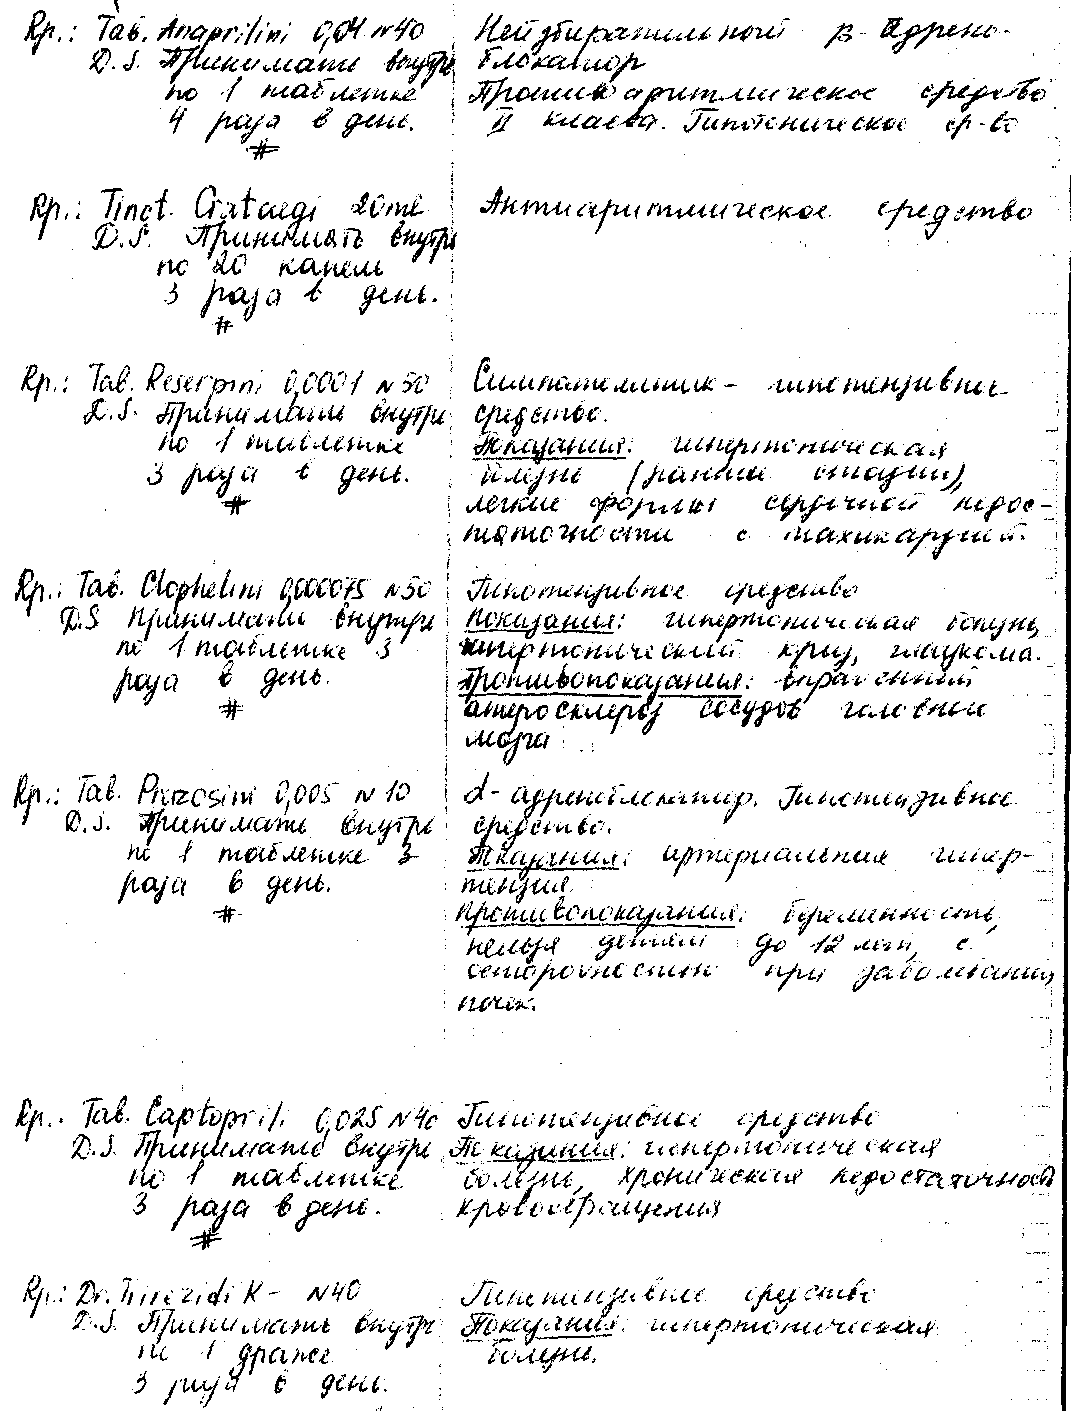 Rp.: Tab. Anaprilini 0,04 N40
D.S. Принимать внутрь
по 1 таблетке
4 раза в день.
#
Неизбирательный β-адрено-
блокатор
Противоаритмическое средство
II класса. Гипотоническое ср-во
Rp.: Tinct. Crataegi 20ml
D.S. Принимать внутрь
по 20 капель
3 раза в день.
#
Антиаритмическое средство
Rp.: Tab. Reserpini 0,0001 N50
D.S. Принимать внутрь
по 1 таблетке
3 раза в день.
#
Симпатолитик - гипотензивное
средство.
Показания: гипертоническая
болезнь (ранние стадии),
легкие формы сердечной недос-
таточности с тахикардией.
Rp.: Tab. Clophelini 0,000075 N50
D.S Принимать внутрь
по 1 таблетке 3
раза в день.
#
Гипотензивное средство
Показания: гипертоническая болезнь,
гипертонический криз, глаукома.
Противопоказания: выраженный
атеросклероз сосудов головного
мозга
Rp.: Tab. Prazosini 0,005 N10
D.S. Принимать внутрь
по 1 таблетке 3
раза в день.
#
α-адреноблокатор. Гипотензивное
средство.
Показания: артериальная гипер-
тензия.
Противопоказания: беременность,
нельзя детям до 12 лет, с
осторожностью при заболевании
почек.
Rp.: Tab. Captoprili 0,025 N40
D.S. Принимать внутрь
по 1 таблетке
3 раза в день.
#
Гипотензивное средство
Показания: гипертоническая
болезнь, хроническая недостаточность
кровообращения
Rp.: Dr. Trirezidi K - N40
D.S. Принимать внутрь
по 1 драже
3 раза в день.
Гипотензивное средство
Показания: гипертоническая
болезнь.